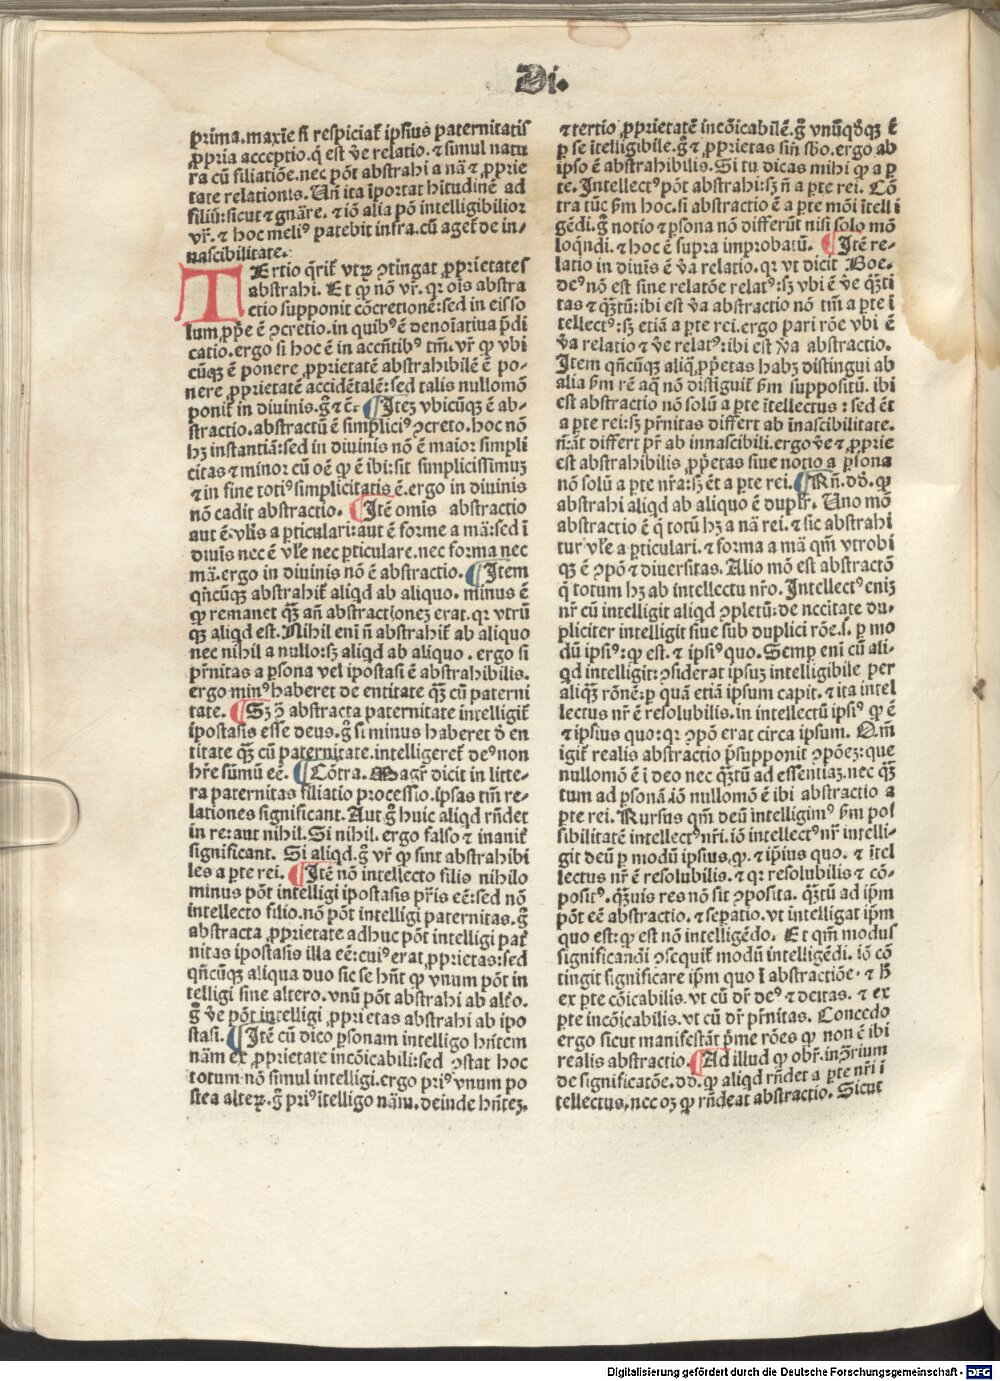 Di.
prima.maxīe si respiciat̄ ipsius paternitatis
ꝓpria acceptio.q̄ est v̄e relatio.⁊ simul natu
ra cū filiatiōe.nec pōt abstrahi a nā ⁊ ꝓprie
tate relationis. Un̄ ita īportat hītudinē ad
filiū:sicut ⁊ gn̄are. ⁊ iō alia pō intelligibilior
vr̄. ⁊ hoc meliꝰ patebit infra.cū aget̄ de in-
nascibilitate.
TErtio q̄rit̄ vtꝝ ꝯtingat ꝓprietates
abstrahi. Et ꝙ nō vr̄. qꝛ oīs abstra
ctio supponit cōcretionē:sed in eis so
lum ꝓpͤe ē ꝯcretio.in quibꝰ ē denoīatiua p̄di
catio.ergo si hoc ē in accn̄tibꝰ tm̄. vr̄ ꝙ vbi
cūqꝫ ē ponere ꝓprietatē abstrahibilē ē po-
nere ꝓprietatē accidētalē:sed talis nullomō
ponit̄ in diuinis.g̊ ⁊ c̄. ¶ Itez vbicūqꝫ ē ab-
stractio.abstractū ē simpliciꝰ ꝯcreto.hoc nō
hꝫ instantiā:sed in diuinis nō ē maior simpli
citas ⁊ minor cū oē ꝙ ē ibi:sit simplicissimuz
⁊ in fine totiꝰ simplicitatis ē.ergo in diuinis
nō cadit abstractio. ¶ Itē omis abstractio
aut ē vl̄is a ꝑticulari:aut ē forme a mā:sed ī
diuīs nec ē vl̄e nec ꝑticulare.nec forma nec
mā.ergo in diuinis nō ē abstractio. ¶ Item
qn̄cūqꝫ abstrahit̄ aliqd ab aliquo. minus ē
ꝙ remanet qꝫ̄ an̄ abstractionez erat.qꝛ vtrū
qꝫ aliqd est.Nihil eni n̄ abstrahit̄ ab aliquo
nec nihil a nullo:sꝫ aliqd ab aliquo.ergo si
pr̄nitas a ꝑsona vel ipostasi ē abstrahibilis.
ergo minꝰ haberet de entitate qꝫ̄ cū paterni
tate. ¶ Sꝫ ꝯ̄ abstracta paternitate intelligit̄
ipostasis esse deus.g̊ si minus haberet d̄ en
titate qꝫ̄ cū paternitate.intelligeret̄ deꝰ non
hr̄e sūmū eē. ¶ Cōtra. Magr̄ dicit in litte-
ra paternitas filiatio processio.ipsas tm̄ re-
lationes significant. Aut g̊ huic aliqd rn̄det
in re:aut nihil. Si nihil. ergo falso ⁊ inanit̄
significant. Si aliqd.g̊ vr̄ ꝙ sint abstrahibi
les a ꝑte rei. ¶ Itē nō intellecto filis nihilo
minus pōt intelligi ipostasis pr̄is eē:sed nō
intellecto filio.nō pōt intelligi paternitas.g̊
abstracta ꝓprietate adhuc pōt intelligi pat̄
nitas ipostasis illa eē:cuiꝰ erat ꝓprietas:sed
qn̄cūqꝫ aliqua duo sic se hn̄t ꝙ vnum pōt in
telligi sine altero.vnū pōt abstrahi ab alt̄o.
g̊ v̄e pōt intelligi ꝓprietas abstrahi ab ipo
stasi. ¶ Itē cū dico ꝑsonam intelligo hn̄tem
nām ex ꝓprietate incōicabili:sed ꝯstat hoc
totum nō simul intelligi.ergo priꝰ vnum po
stea alteꝝ.g̊ priꝰ ītelligo nām.deinde hn̄tez.
⁊ tertio ꝓprietatē incōicabilē.g̊ vnūqd̄qꝫ ē
ꝑ se ītelligibile.g̊ ⁊ ꝓprietas sin̄ sb̄o.ergo ab
ipso ē abstrahibilis.Si tu dicas mihi ꝙ a ꝑ
te. Intellectꝰ pōt abstrahi:sꝫ n̄ a ꝑte rei. Cō
tra tūc ẜm hoc.si abstractio ē a ꝑte mōi ītelli
gēdi.g̊ notio ⁊ ꝑsona nō differūt nisi solo mō
loq̄ndi.⁊ hoc ē supra improbatū. ¶ Itē re-
latio in diuīs ē v̄a relatio.qꝛ vt dicit Boe.
deꝰ nō est sine relatōe relatꝰ:sꝫ vbi ē v̄e qꝫ̄ti
tas ⁊ qꝫ̄tū:ibi est v̄a abstractio nō tm̄ a ꝑte ī
tellectꝰ:sꝫ etiā a ꝑte rei.ergo pari rōe vbi ē
v̄a relatio ⁊ v̄e relatꝰ:ibi est v̄a abstractio.
Item qn̄cūqꝫ aliq̄ ꝓpͤetas habꝫ distingui ab
alia ẜm rē a q̄ nō distiguit̄ ẜm suppositū. ibi
est abstractio nō solū a ꝑte ītellectus:sed ēt
a ꝑte rei:sꝫ pr̄nitas differt ab īnascibilitate.
nā:āt differt pr̄ ab innascibili.ergo v̄e ⁊ ꝓprie
est abstrahibilis ꝓpͤetas siue notio a ꝑsona
nō solū a ꝑte nr̄a:sꝫ ēt a ꝑte rei. ¶ Rn̄. dō. ꝙ
abstrahi aliqd ab aliquo ē duplr̄. Uno mō
abstractio ē q̄ totū hꝫ a nā rei.⁊ sic abstrahi
tur vl̄e a ꝑticulari.⁊ forma a mā qm̄ vtrobi
qꝫ ē ꝯpō ⁊ diuersitas. Alio mō est abstractō
q̄ totum hꝫ ab intellectu nr̄o. Intellectꝰ eniz
nr̄ cū intelligit aliqd ꝯpletū:de nccītate du-
pliciter intelligit siue sub duplici rōe.s. ꝑ mo
dū ipsiꝰ:ꝙ est.⁊ ipsiꝰ quo.Semꝑ enī cū ali-
qd intelligit:ꝯsiderat ipsuz intelligibile per
aliqꝫ̄ rōnē:ꝑ quā etiā ipsum capit.⁊ ita intel
lectus nr̄ ē resolubilis. in intellectū ipsiꝰ ꝙ ē
⁊ ipsius quo:qꝛ ꝯpō erat circa ipsum. Qm̄
igit̄ realis abstractio p̄supponit ꝯpōez:que
nullomō ē ī deo nec qꝫ̄tū ad essentiaz.nec qꝫ̄
tum ad ꝑsonā.iō nullomō ē ibi abstractio a
ꝑte rei. Rursus qm̄ deū intelligimꝰ ẜm pos
sibilitatē intellectꝰ nr̄i.iō intellectꝰ nr̄ intelli-
git deū ꝑ modū ipsius.ꝙ.⁊ ip̄ius quo. ⁊ ītel
lectus nr̄ ē resolubilis.⁊ qꝛ resolubilis ⁊ cō-
positꝰ. qꝫ̄uis res nō sit ꝯposita. qꝫ̄tū ad ip̄m
pōt eē abstractio. ⁊ seꝑatio.vt intelligat ip̄m
quo est:ꝙ est nō intelligēdo. Et qm̄ modus
significandi ꝯsequit̄ modū intelligēdi. iō cō
tingit significare ip̄m quo ī abstractiōe. ⁊ h̄
ex ꝑte cōicabilis.vt cū dr̄ deꝰ ⁊ dcitas. ⁊ ex
ꝑte incōicabilis.vt cū dr̄ pr̄nitas. Concedo
ergo sicut manifestāt p̄me rōes ꝙ non ē ibi
realis abstractio. ¶ Ad illud ꝙ obr̄.in ꝯ̄rium
de significatōe.dō. ꝙ aliqd rn̄det a ꝑte nr̄i ī
tellectus.nec oꝫ ꝙ rn̄deat abstractio. Sicut
Digitalisierung gefördert durch die Deutsche Forschungsgemeinschaft - DFG